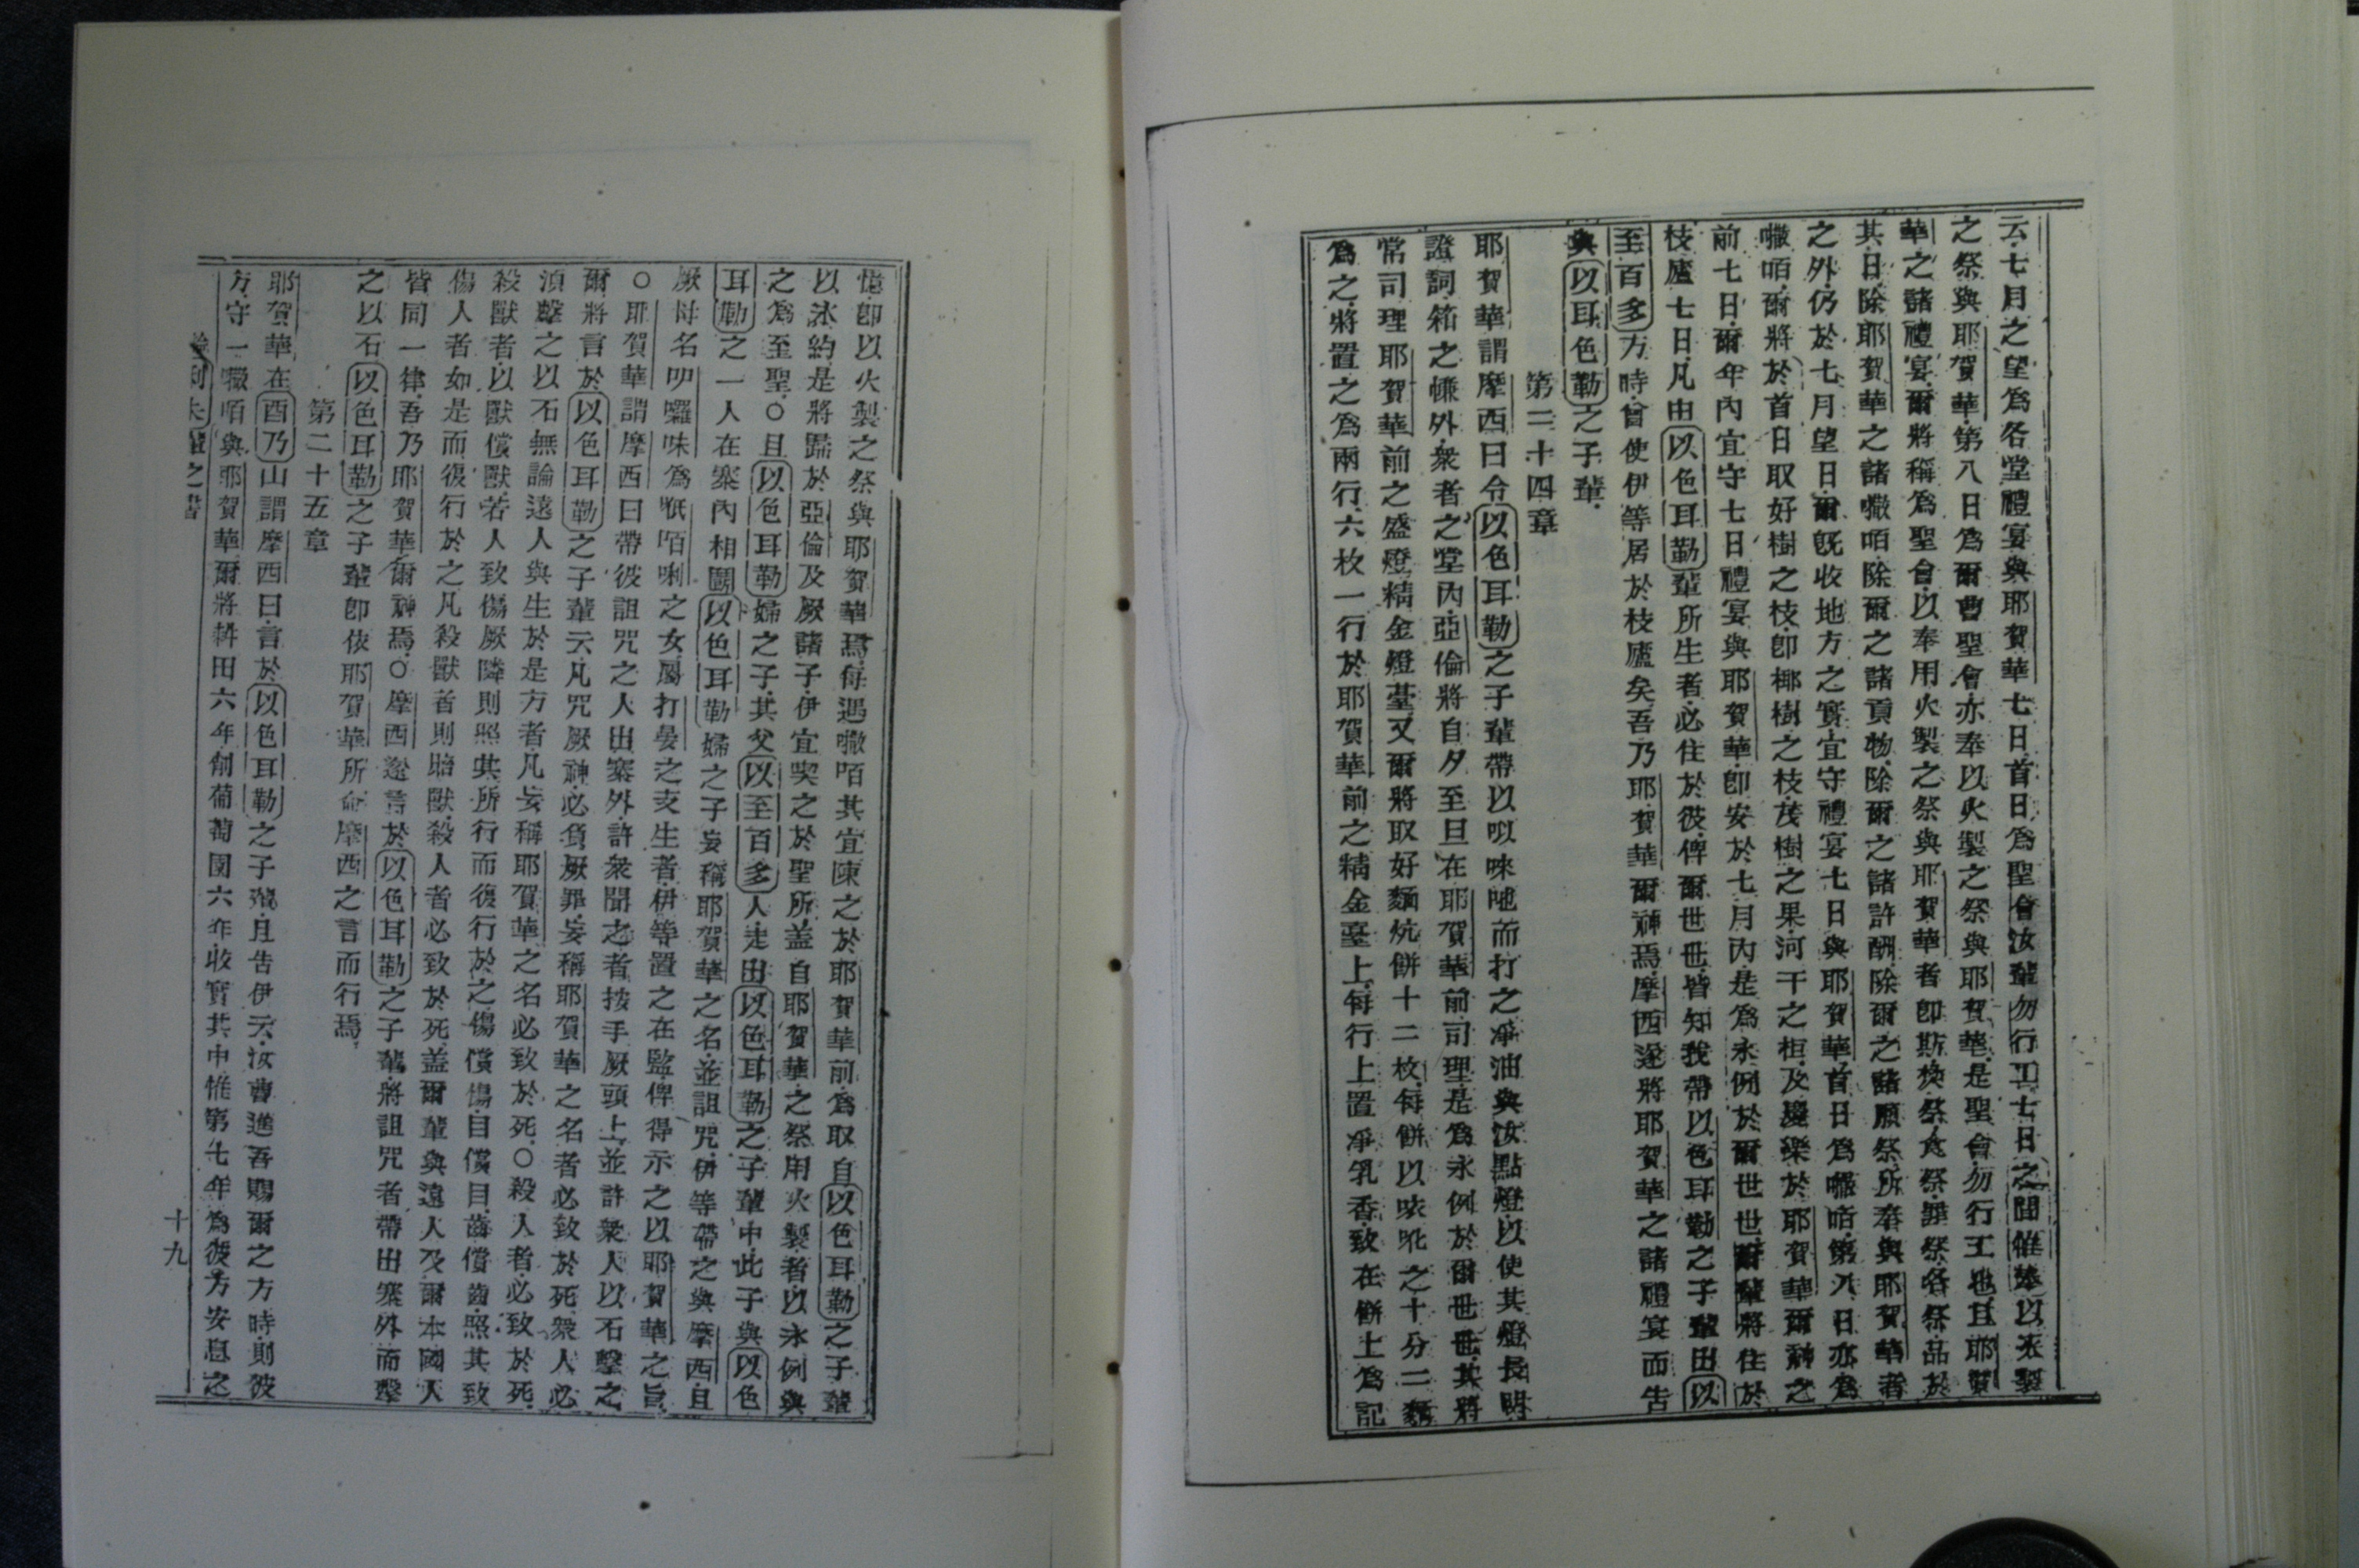 云七月之望爲各堂禮宴與耶賀華七日首日爲聖會汝輩勿行工七日之間惟奉以火製
之祭與耶賀華第八日爲爾曹聖會亦奉以火製之祭與耶賀華是聖會勿行工也且耶賀
華之諸禮宴爾將稱爲聖會以奉用火製之祭與耶賀華者卽斯焚祭食祭罪祭各祭品於
其日除耶賀華之諸㘔咟除爾之諸貢物除爾之諸許酬除爾之諸願祭所奉與耶賀華者
之外仍於七月望日爾旣收地方之實宜守禮宴七日與耶賀華首日爲㘔咟第八日亦爲
㘔咟爾將於首日取好樹之枝卽椰樹之枝茂樹之果河干之柜及慶樂於耶賀華爾神之
前七日爾年內宜守七日禮宴與耶賀華卽安於七月內是爲永例於爾世世爾輩將住於
枝廬七日凡由以色耳勒輩所生者必住於彼俾爾世世皆知我帶以色耳勒之子輩出以
至百多方時曾使伊等居於枝廬矣吾乃耶賀華爾神焉摩西遂將耶賀華之諸禮宴而告
與以耳色勒之子輩
第二十四章
耶賀華謂摩西曰令以色耳勒之子輩帶以㕥唻哋而打之凈油與汝點燈以使其燈長明
證詞箱之㡘外衆者之堂內亞倫將自夕至旦在耶賀華前司理是爲永例於爾世世其將
常司理耶賀華前之盛燈精金燈䑓又爾將取好麵炕餅十二枚每餅以咳㕧之十分二麵
爲之將置之爲兩行六枚一行於耶賀華前之精金臺上每行上置凈乳香致在餅上爲記
憶卽以火製之祭與耶賀華焉每遇㘔咟其宜陳之於耶賀華前爲取自以色耳勒之子輩
以永約是將歸於亞倫及厥諸子伊宜喫之於聖所盖自耶賀華之祭用火製者以永例與
之爲至聖○且以色耳勒婦之子其父以至百多人走出以色耳勒之子輩中此子與以色
耳勒之一人在寨內相鬬以色耳勒婦之子妄稱耶賀華之名並詛咒伊等帶之與摩西且
厥母名叩囉味爲㕶咟唎之女屬打晏之支生者伊等置之在監俾得示之以耶賀華之旨
○耶賀華謂摩西曰帶彼詛咒之人出寨外許衆聞之者按手厥頭上並許衆人以石擊之
爾將言於以色耳勒之子輩云凡咒厥神必負厥罪妄稱耶賀華之名者必致於死衆人必
湏擊之以石無論遠人與生於是方者凡妄稱耶賀華之名必致於死○殺人者必致於死
殺獸者以獸償獸若人致傷厥隣則照其所行而復行於之傷償傷目償目齒償齒照其致
傷人者如是而復行於之凡殺獸者則賠獸殺人者必致於死盖爾輩與遠人及爾本國人
皆同一律吾乃耶賀華爾神焉○摩西遂言於以色耳勒之子輩將詛咒者帶出寨外而擊
之以石以色耳勒之子輩卽依耶賀華所命摩西之言而行焉
第二十五章
耶賀華在酉乃山謂摩西曰言於以色耳勒之子輩且告伊云汝曹進吾賜爾之方時則彼
方守一㘔咟與耶賀華爾將耕田六年削葡萄園六年收實其中惟第七年爲彼方安息之
利未輩之書
十九